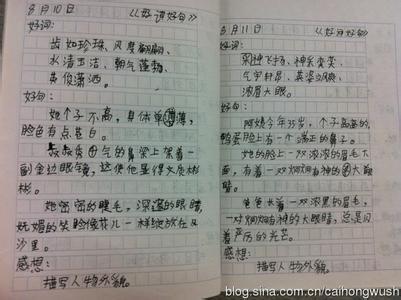 8月10日 《好词好句》
好词:
齿如珍珠、风度翩翩、
冰清玉洁、朝气蓬勃、
英俊潇洒。
好句:
她个子不高,身体单薄,
脸色有点苍白。
叔叔秀气的鼻梁上架着一
副金边眼镜,这使他显得文质彬
彬。
她密密的睫毛,深邃的眼睛,
妩媚的笑脸像花儿一样绽放在
沙里。
感想:
描写人物外貌。
8月11日 《好词好句》
好词:
采神飞扬、神采奕奕、
气宇轩昂、英姿飒爽、
浓眉大眼。
好句:
阿姨今年35岁,个子高高的,
鸭蛋脸上有一个端正的鼻子。
她的脸上一双浓浓的眉毛下
面,有着一双炯炯有神的大眼
睛。
爸爸长着一双浓黑的眉毛,
一对炯炯有神的大眼睛,总是闪
着严厉的光芒。
感想:
描写人物外貌。
blog.sina.com.cn/caihongwush